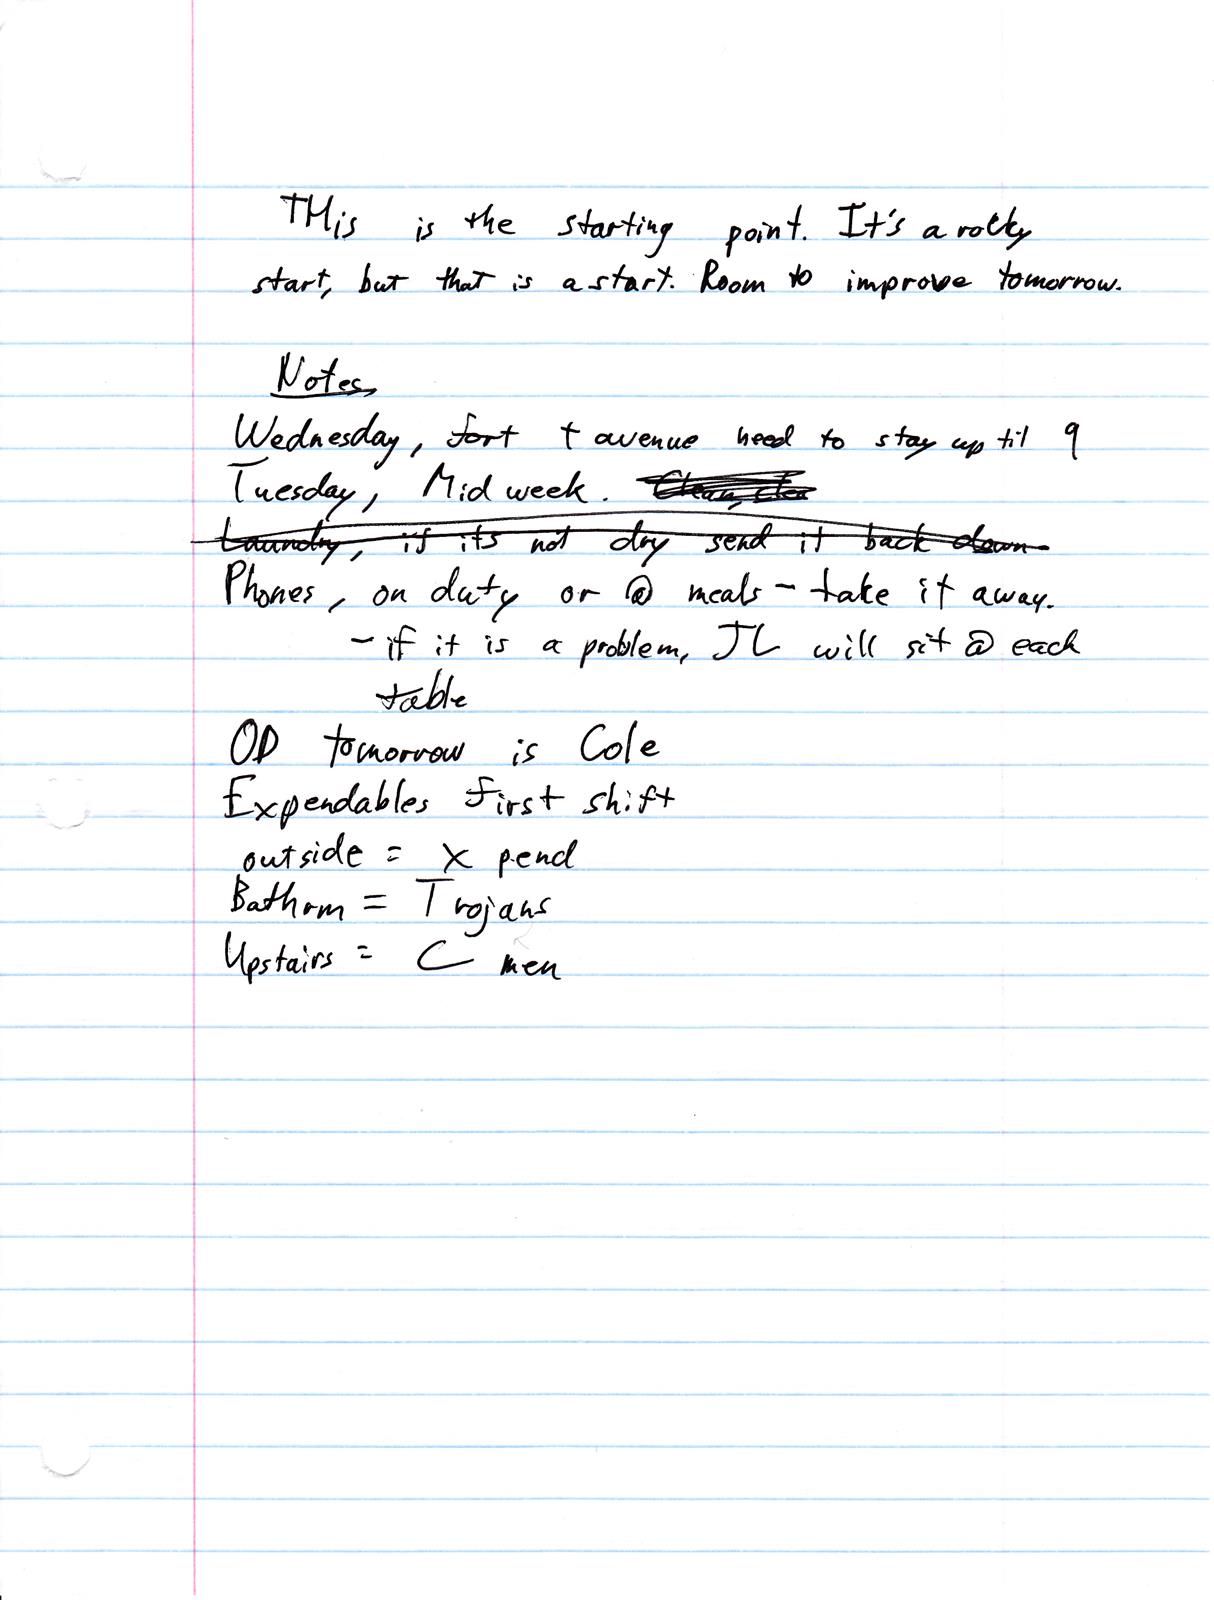 THis is the starting point. It's a rocky
start, but that is a start. Room to improve tomorrow.
Notes
Wednesday, fort + avenue need to stay up til 9
Tuesday, Mid week. Clean, clea
Laundry, if its not dry send it back down
Phones, on duty or @ meals - take it away.
- if it is a problem, JL will sit @ each
table
OD tomorrow is Cole
Expendables first shift
outside = X pend
Bathrm = Trojans
Upstairs = C men